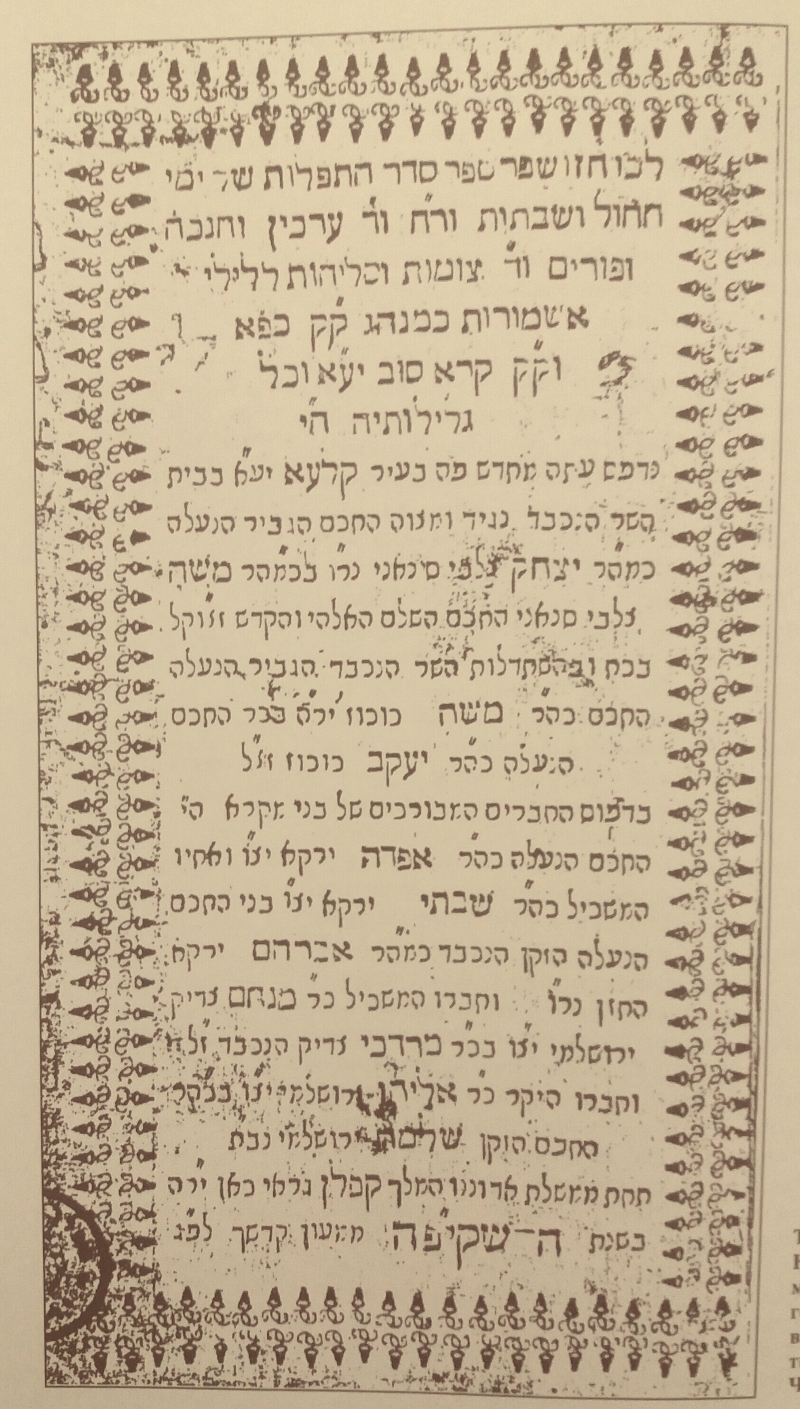 לכו חזו שפר ספר סדר התפלות של ימי
החול ושבתות ור״ח וד׳ ערכין וחנכה
ופורים וד׳ צומות וסליחות ללילי
אשמורות כמנהג ק״ק כפא
וק״ק קרא סוב יע״א וכל
גלילותיה הי״
נדפס עתה מחדש פה בעיר קלעא יע״א בבית
השר הנכבד נגיד ומצוה החכם הגביר הנעלה
כמה״ר יצחק צלבי סינאני נר״ו בכמהר משה
צלבי סנאני החכם השלם האלהי והקדש זצוקל
בכח ובהשתדלות השר הנכבד הגביר הנעלה
החכם כה״ר משה כוכוז יר״ה בכר החכם
הנעלה כה״ר יעקב כוכוז ז״ל
בדפוס החברים המבורכים של בני מקרא ה״י
החכם הנעלה כה״ר אפדה ירקא יצ״ו ואחיו
המשכיל כה״ר שבתי ירקא יצ״ו בני החכם
הנעלה הזקן הנכבד כמה״ר אברהם ירקא
החזן נר״ו וחברו המשכיל כ״ר מנחם צדיק
ירושלמי יצ״ו בכ״ר מרדכי צדיק הנכבד זלה
וחברו היקר כ״ר אליהו ירושלמי יצ״ו בכהר
החכם הזקן שלמה ירושלמי נבת
תחת ממשלת אדוננו המלך קפלן גראי כאן יר״ה
בשנת השקיפה ממעון קדשך לפ״ג